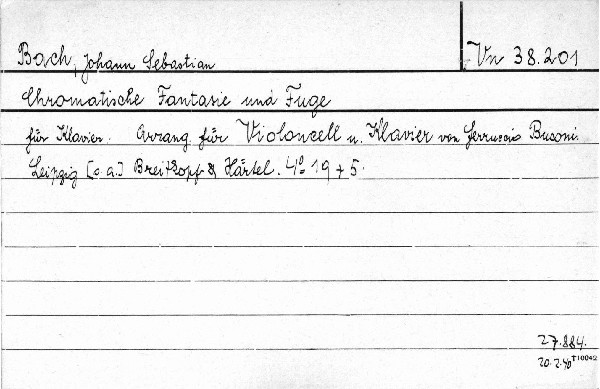 Bach, Johann Sebastian
Vn 38.201
Chromatische Fantasie und Fuge
für Klavier. Arrang. für Violoncell u. Klavier von Ferruccio Busoni.
Leipzig [o. a.] Breitkopf & Härtel. 4° 19 + 5.
27.884.
20.2.40
T10042